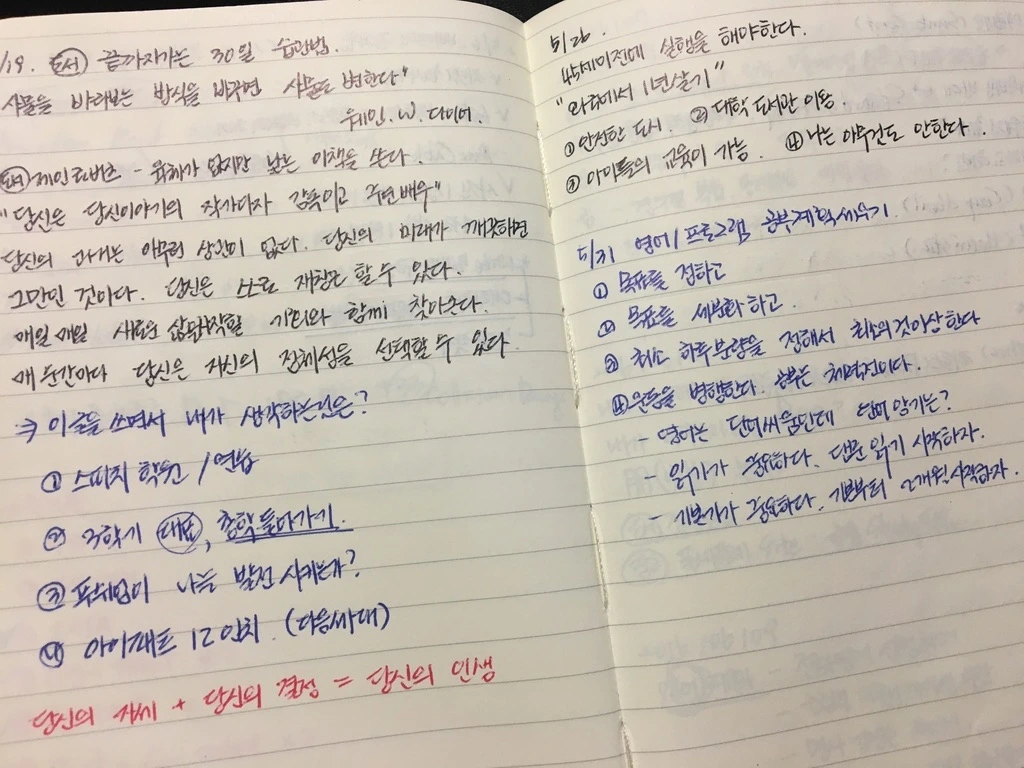 /19. 도서 끝까지가는 30일 습관법.
사물을 바라보는 방식을 바꾸면 사물도 변한다"
웨인. W. 다이어.
도서 제인 로버츠 - 육체가 없지만 나는 이책을 쓴다.
"당신은 당신이야기의 작가이자 감독이고 주연배우"
당신의 과거는 아무런 상관이 없다. 당신의 미래가 깨끗하면
그만인 것이다. 당신은 스스로 재창조 할 수 있다.
매일매일 새로운 기회와 함께 찾아온다.
매 순간마다 당신은 자신의 정체성을 선택할 수 있다.
이 글을 쓰면서 내가 생각하는것은?
① 스피치 학원 / 연습
② 3학기 대표, 총학 들어가기.
③ 무엇이 나를 발전 시키는가?
④ 아이패드 12인치. (다음세대)
당신의 자세 + 당신의 결정 = 당신의 인생
5/26.
45세이전에 실행을 해야한다.
"외국에서 1년살기"
① 안전한 도시. ② 대학 도서관 이용.
③ 아이들의 교육이 가능. ④ 나는 아무것도 안한다.
5/31 영어/프로그램 공부계획세우기.
① 목표를 정하고
② 목표를 세분화 하고.
③ 최소 하루분량을 정해서 최소의 것이상 한다
④ 운동을 병행한다. 공부는 체력전이다.
- 영어는 단어싸움인데 단어 암기는?
- 읽기가 중요하다. 단문 읽기 시작하자.
- 기본기가 중요하다. 기본부터 2개월 시작하자.